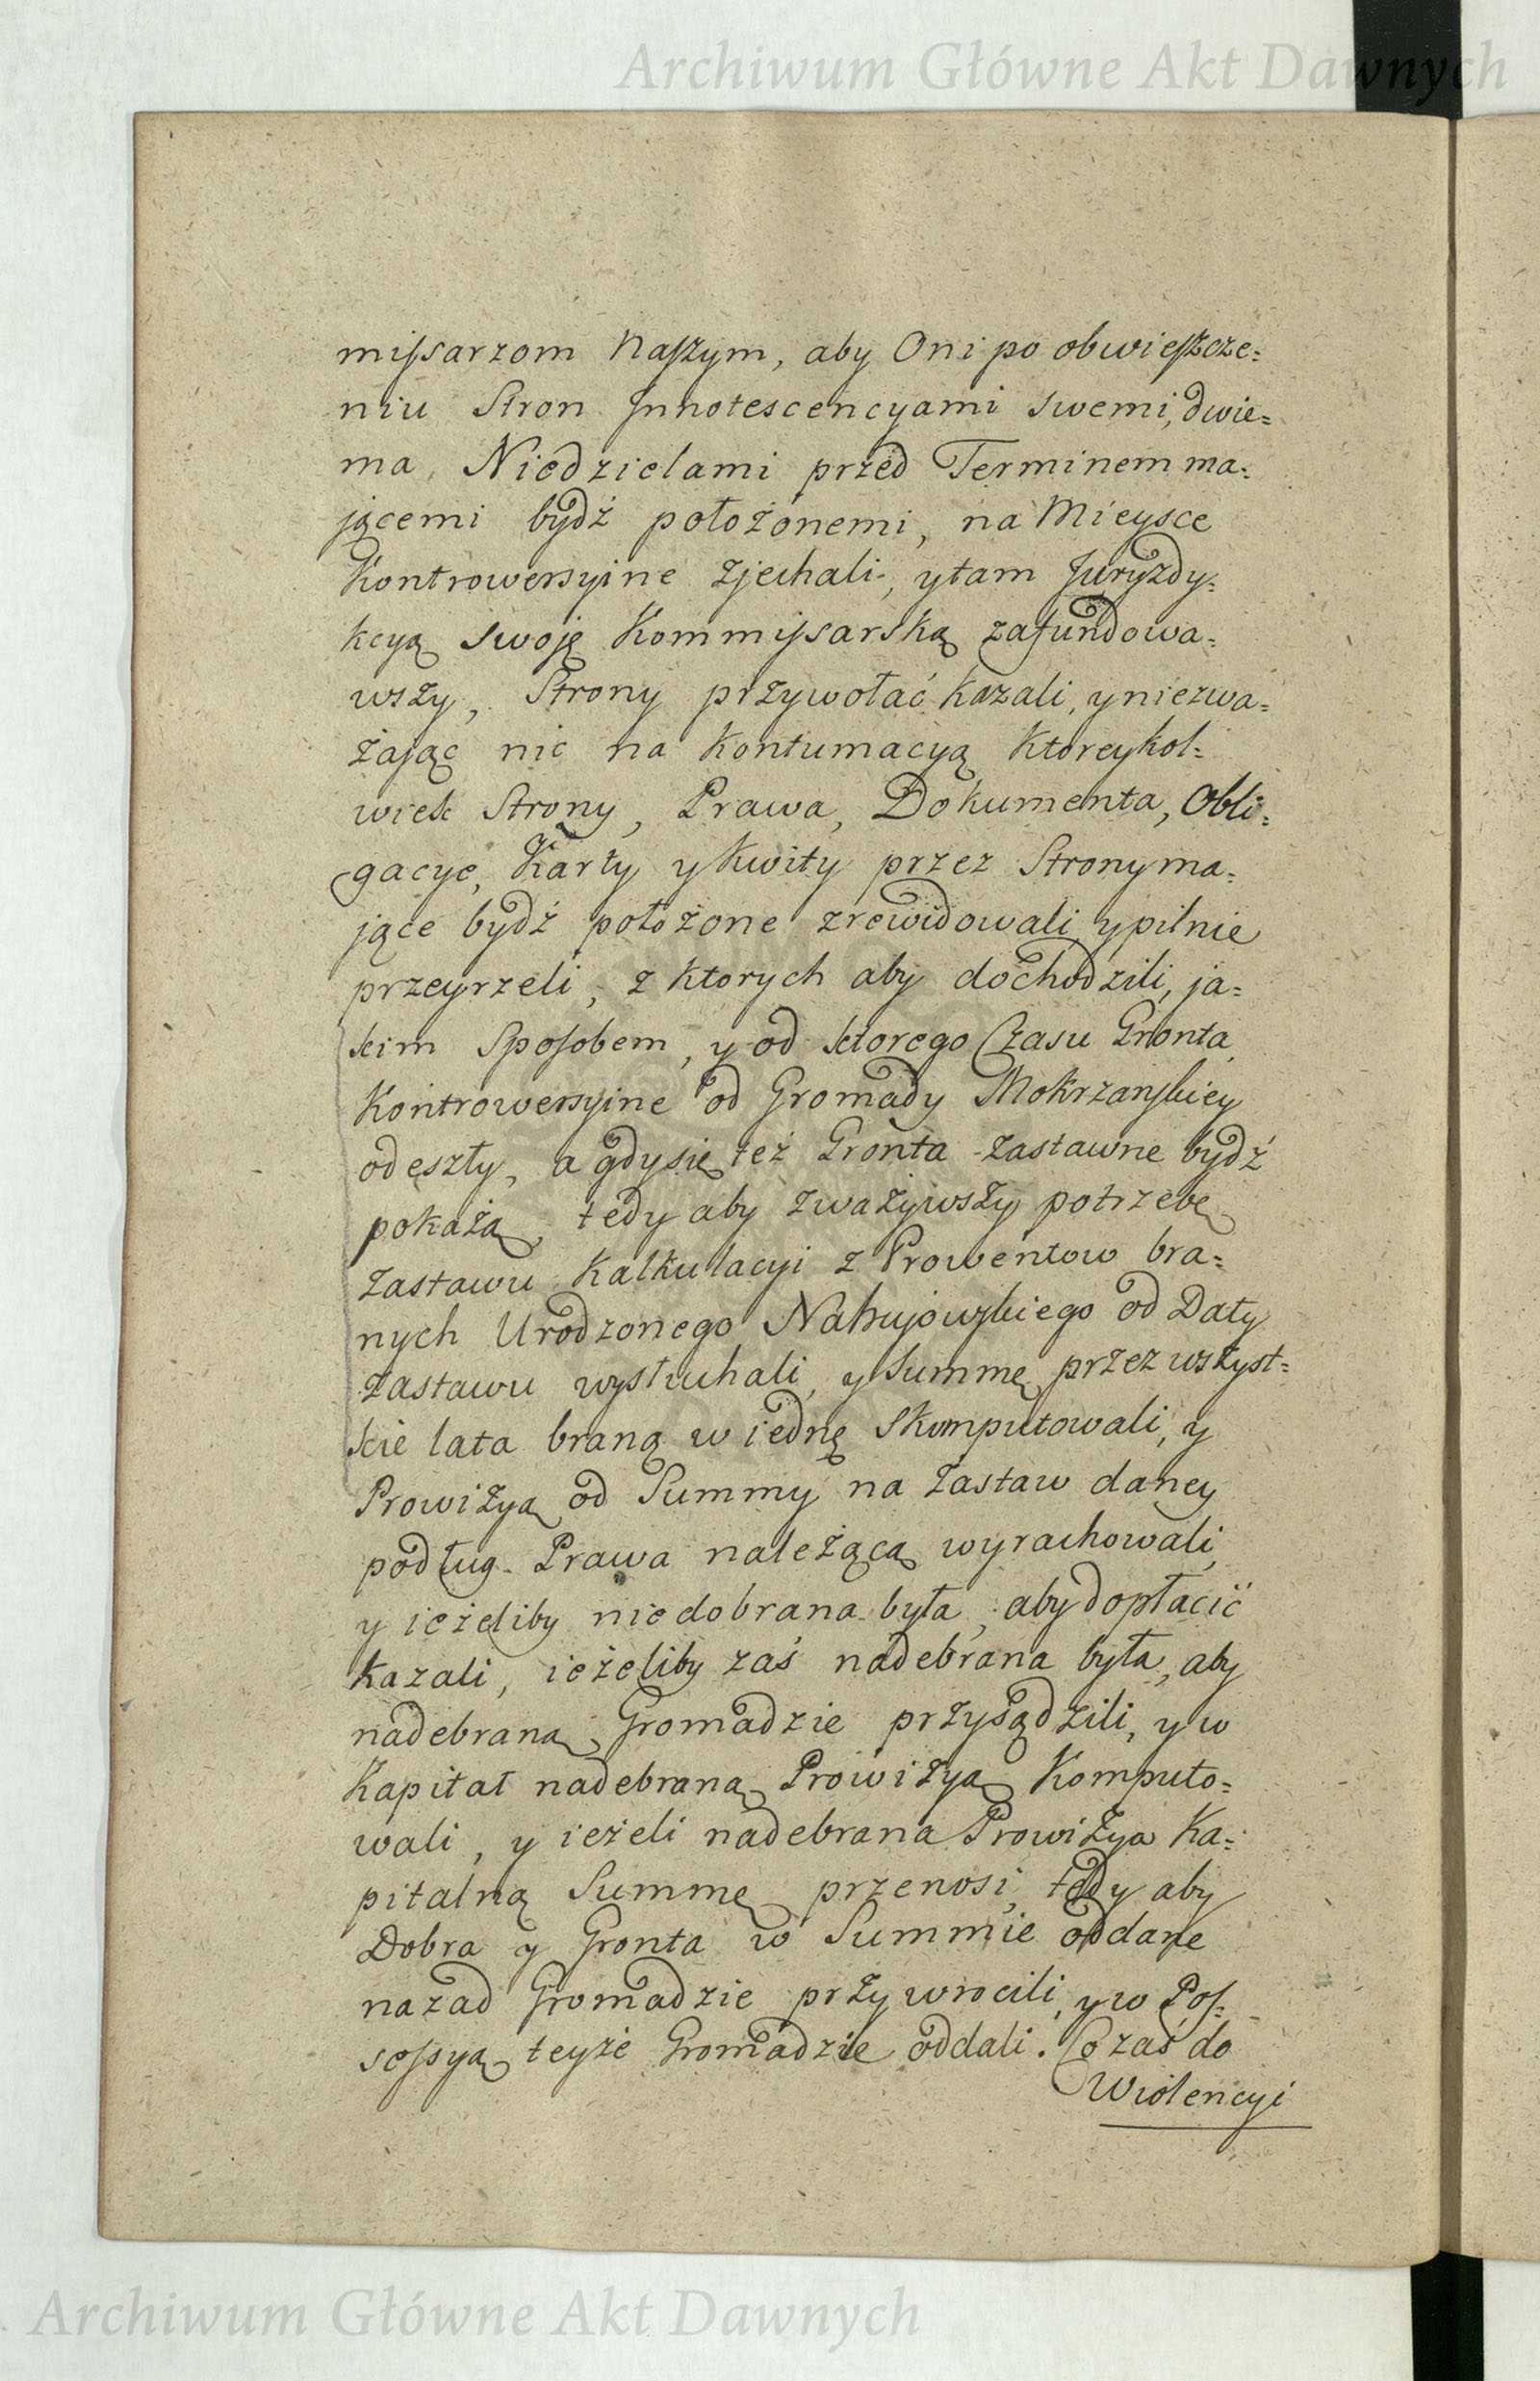 Archiwum Główne Akt Dawnych
miſsarzom Naſzym, aby Oni po obwieſzcze=
niu Stron Innotescencyami swemi, dwie=
ma Niedzielami przed Terminem ma=
jącemi bydź położonemi, na Mieysce
Kontrowersyine zjechali, y tam Juryzdy=
kcyą swoję Kommiſsarską zafundowa=
wszy, Strony przywołać kazali, y niezwa=
żając nic na Kontumacyą ktoreykol=
wiek Strony, Prawa, Dokumenta, Obli=
gacye, Karty y Kwity przez Strony ma=
jące bydź położone zrewidowali y pilnie
przeyrzeli, z ktorych aby dochodzili, ja=
kim sposobem, y od ktorego Czasu Gronta
Kontrowersyine od Gromady Mokrzanſkiey
odeszły, a gdy się też Gronta zastawne bydź
pokażą, tedy aby zważywszy potrzebę
zastawu Kalkulacyi z Prowentow bra=
nych Urodzonego Nahujowſkiego od Daty
zastawu wysłuchali, y Summę przez wszyst=
kie lata braną w iednę skomputowali, y
Prowizyą od Summy na zastaw daney
podług Prawa należącą wyrachowali,
y ieżeliby niedobrana była, aby dopłacić
kazali, ieżeliby zaś nadebrana była, aby
nadebraną Gromadzie przysądzili, y w
Kapitał nadebraną Prowizyą Komputo=
wali, y ieżeli nadebrana Prowizya Ka=
pitalną Summę przenosi, tedy aby
Dobra y Gronta w Summie oddane
nazad Gromadzie przywrocili, y w Poſ=
seſsyą teyże Gromadzie oddali. Co zaś do
Wiolencyi
Archiwum Główne Akt Dawnych